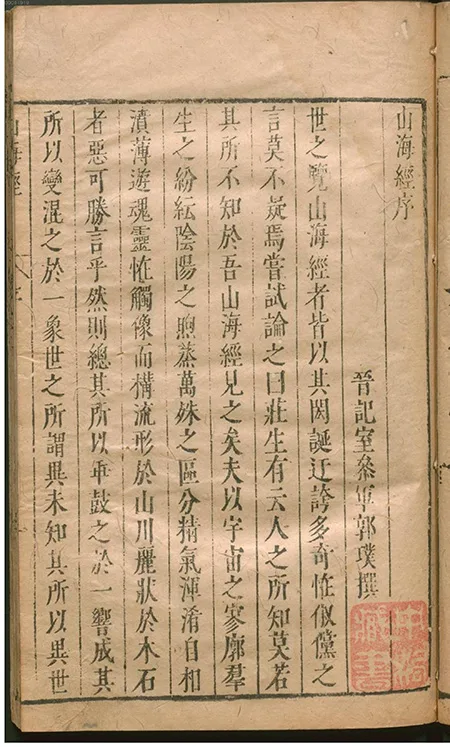 山海經序
晉記室叅軍郭璞撰
世之覽山海經者皆以其閎誕迂誇多奇怪俶儻之
言莫不疑焉嘗試論之曰莊生有云人之所知莫若
其所不知於吾山海經見之矣夫以宇宙之寥廓羣
生之紛紜陰陽之煦蒸萬殊之區分精氣渾淆自相
濆薄遊魂靈怪觸像而構流形於山川麗狀於木石
者惡可勝言乎然則總其所以乖鼓之於一響成其
所以變混之於一象世之所謂異未知其所以異世
山海經